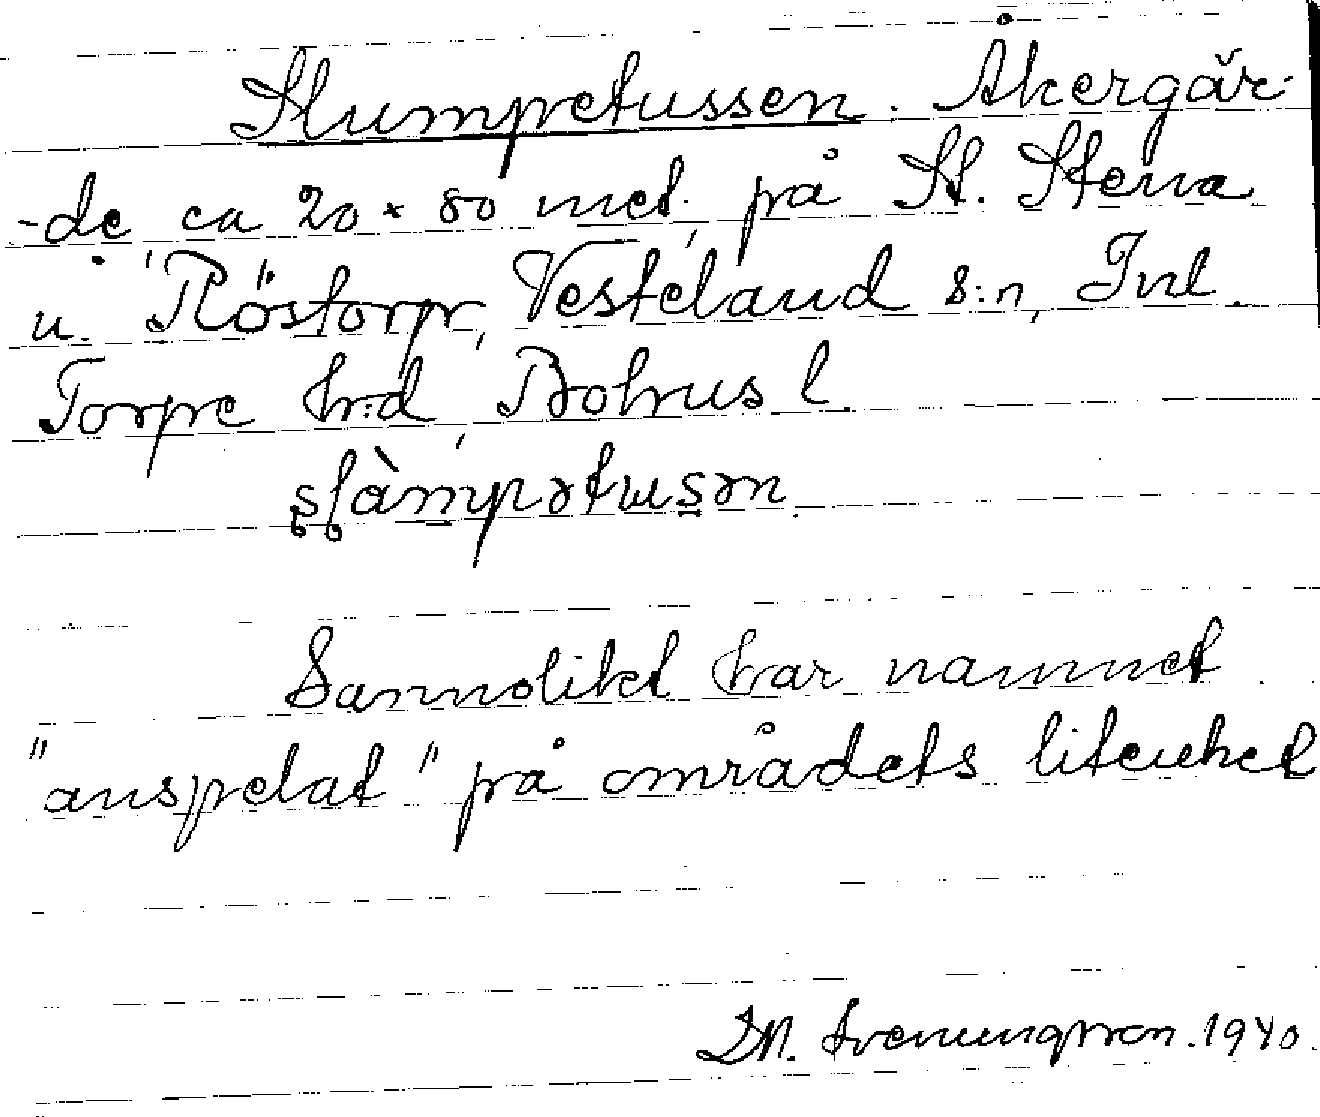 Slumpetussen. Åkergär-
-de ca 20 × 80 met. på St. Stena
u. Röstorp, Vesteland s:n, Inl.
Torpe h:d, Bohus l.
Sannolikt har namnet
"anspelat" på områdets litenhet
Svenungsson. 1940.